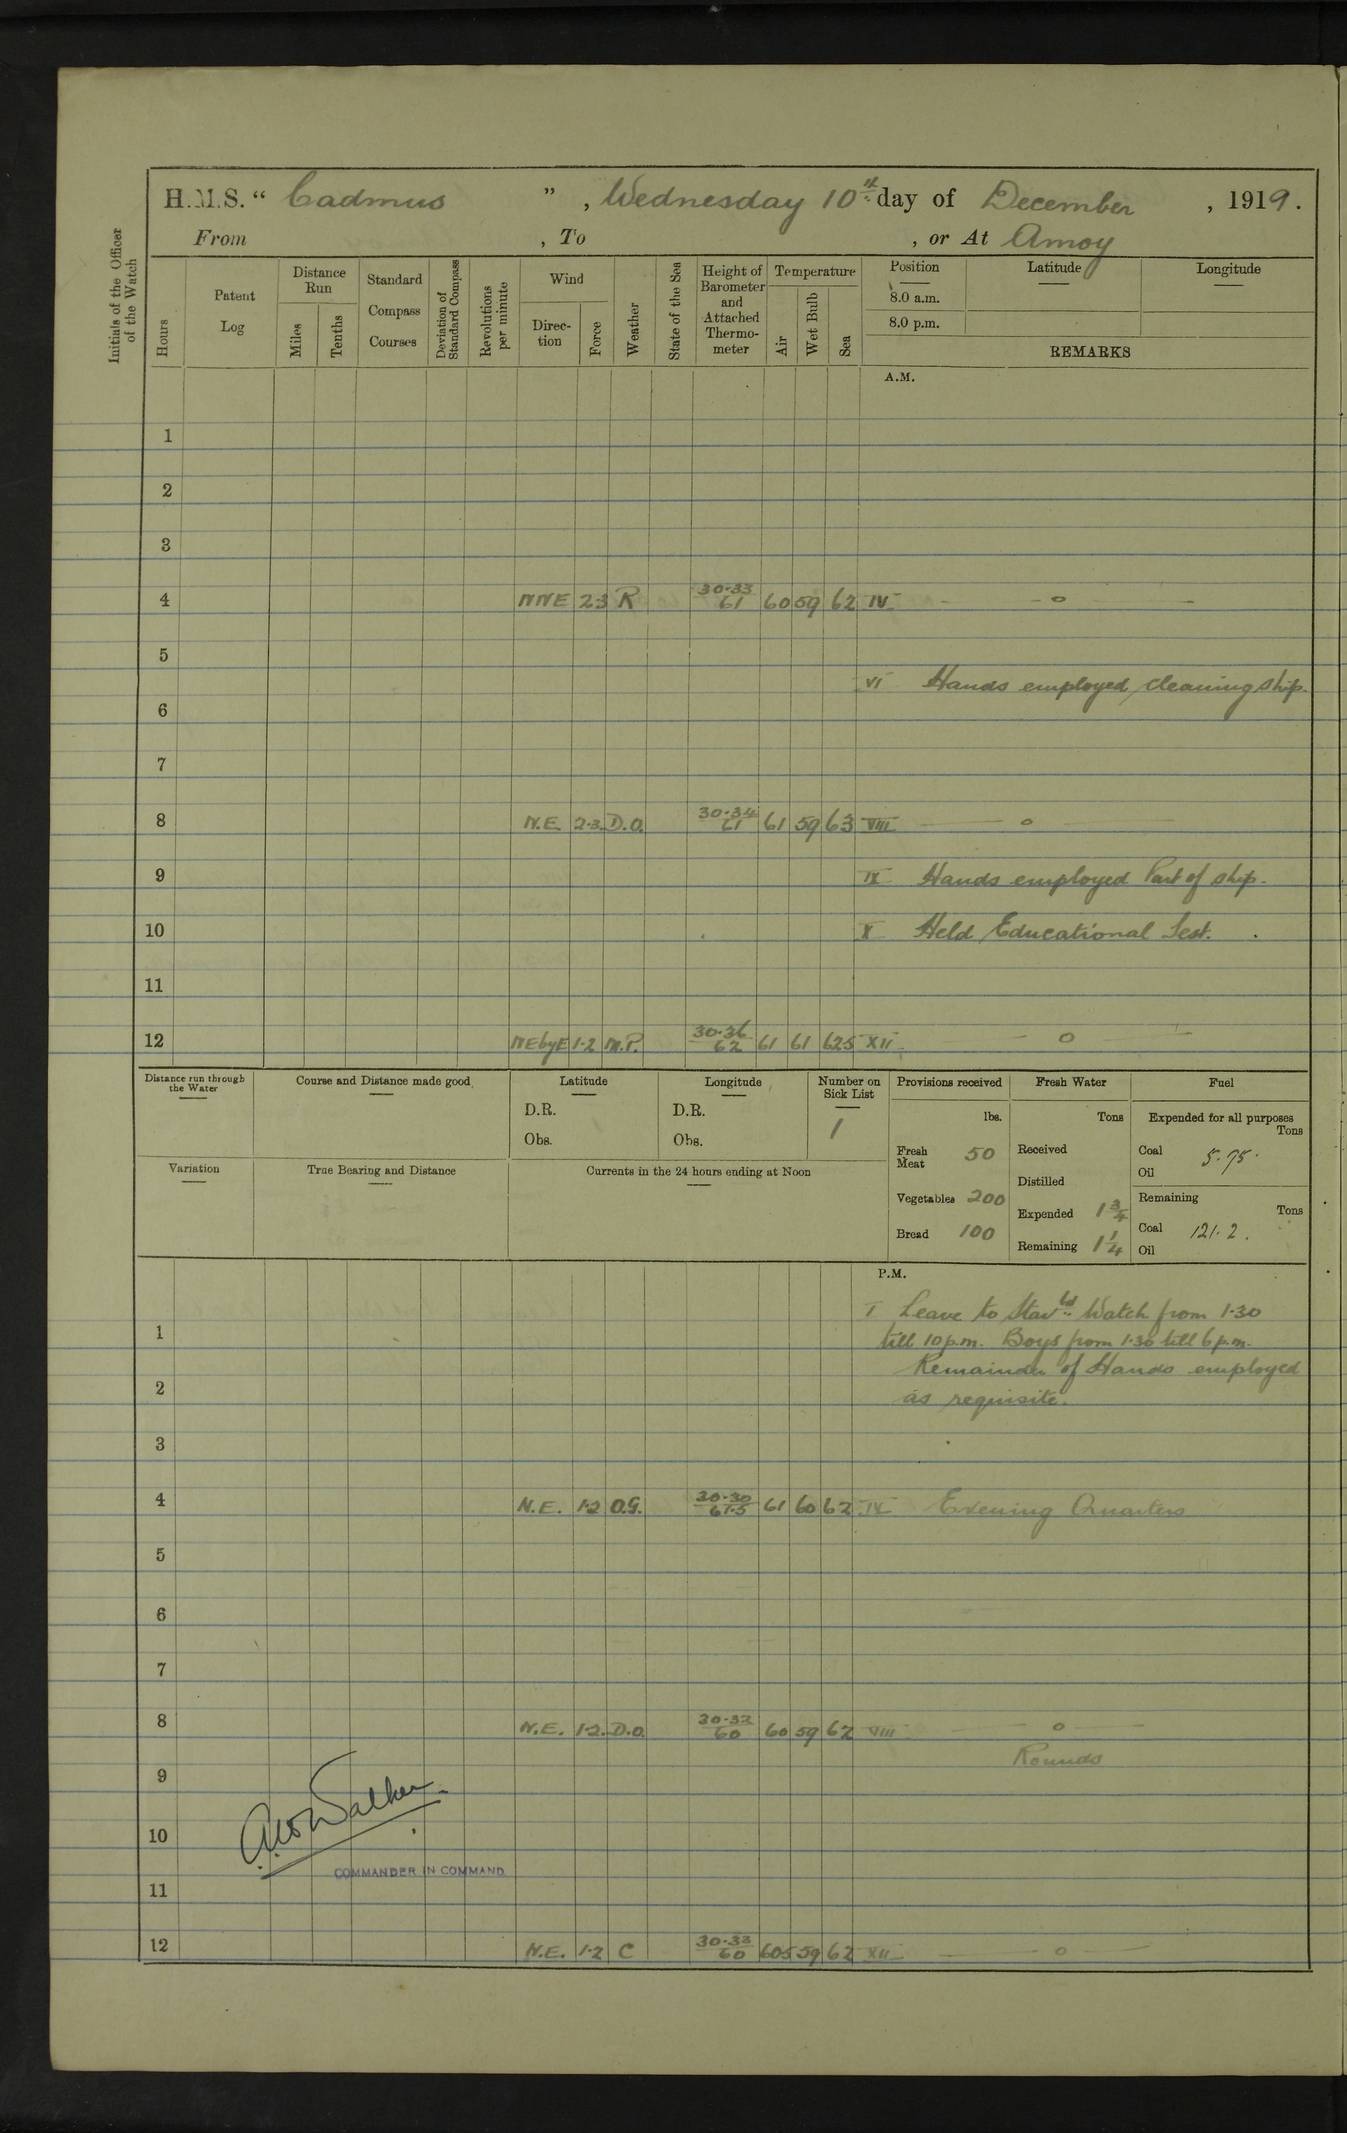 H.M.S. “ Cadmus ” , Wednesday 10th day of December , 1919.
From , To , or At Amoy
Initials of the Officer of the Watch
Hours
Patent Log
Distance Run
Miles
Tenths
Standard Compass Courses
Deviation of Standard Compass
Revolutions per minute
Wind
Direc-tion
Force
Weather
State of the Sea
Height of Barometer and Attached Thermo-meter
Temperature
Air
Wet Bulb
Sea
Position
8.0 a.m.
8.0 p.m.
Latitude
Longitude
REMARKS
A.M.
1
2
3
4 NNE 2·3 R 30·33 61 60 59 62 IV — o —
5
VI Hands employed cleaning ship.
6
7
8 N.E. 2·3. D.O. 30·34 61 61 59 63 VIII — o —
9 IX Hands employed Part of ship.
10 X Held Educational Test.
11
12 NEbyE 1·2 M.P. 30·36 62 61 61 625 XII — o —
Distance run through the Water
Course and Distance made good
Latitude
D.R.
Obs.
Longitude
D.R.
Obs.
Number on Sick List
1
Provisions received
lbs.
Fresh Meat 50
Vegetables 200
Bread 100
Fresh Water
Tons
Received
Distilled
Expended 1 3/4
Remaining 1 1/4
Fuel
Expended for all purposes
Tons
Coal 5·75·
Oil
Remaining
Tons
Coal 121·2.
Oil
Variation
True Bearing and Distance
Currents in the 24 hours ending at Noon
P.M.
I Leave to Starbd Watch from 1·30
1 till 10 p.m. Boys from 1·30 till 6 p.m.
Remainder of Hands employed
2 as requisite.
3
4 N.E. 1·2 O.G. 30·30 61·5 61 60 62 IV Evening Quarters
5
6
7
8 N.E. 1·2. D.O. 30·32 60 60 59 62 VIII — o —
Rounds
9
10
Walker
COMMANDER IN COMMAND
11
12 N.E. 1·2 C 30·33 60 605 59 62 XII — o —